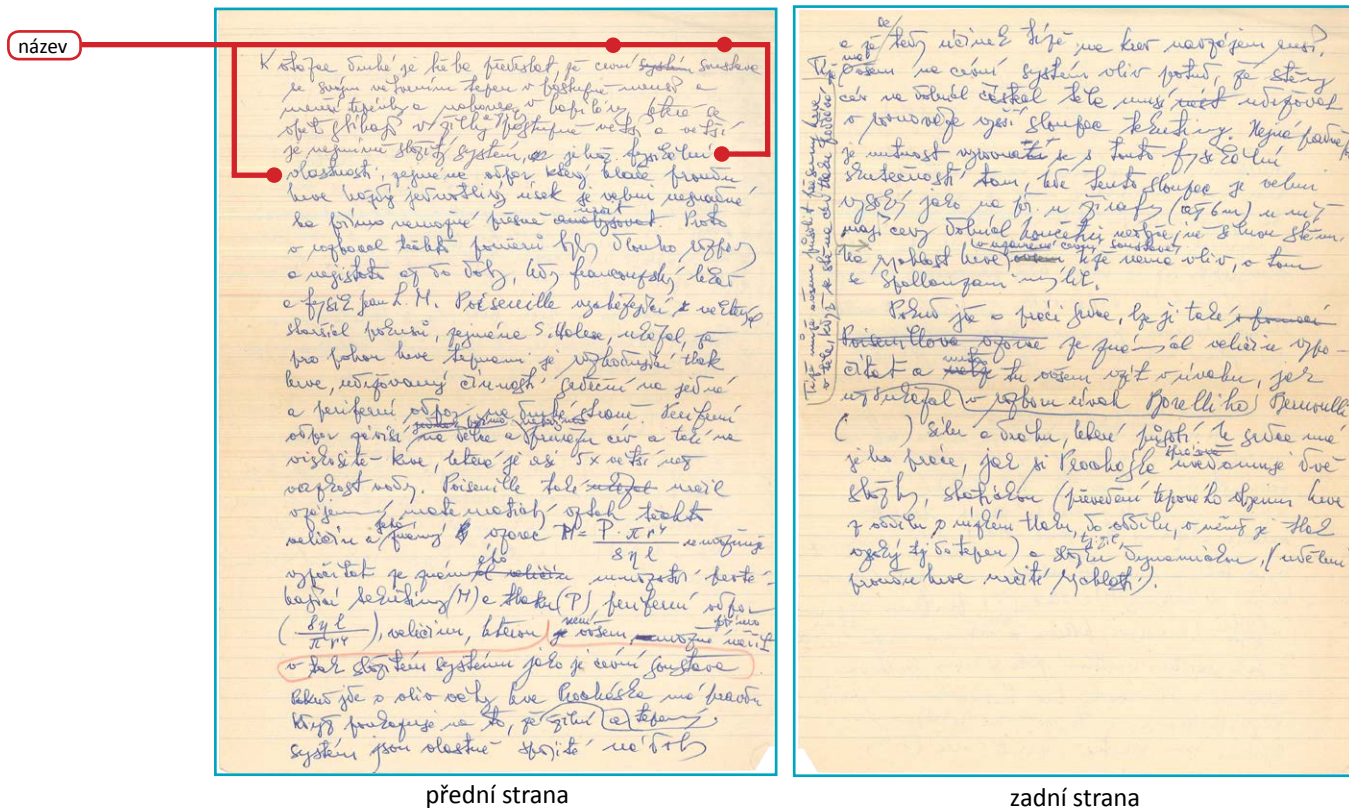 název
K otázce druhé je třeba předeslat, že cévní systém soustava
se svým větvením tepen v postupně menší a
menší tepénky a nakonec v kapiláry, které se
opět sbíhají v žilky postupně větší a větší
je nesmírně složitý systém, jehož fysikální
vlastnosti, zejména odpor který klade proudu
krve každý jednotlivý úsek je velmi nesnadné
ba přímo nemožné přesně analysovat. Proto
o vzájemné těchto poměrů byly dlouho rozpory
a nejistota až do doby, kdy francouzský lékař
a fysik Jean L. M. Poiseuille
pokusů, zejména S. Halese, ukázal, že
pro pohon krve tepnami je rozhodující tlak
krve, udržovaný činností srdeční na jedné
a periferní odpor na druhé straně. Periferní
odpor závisí na délce a průměru cév a také na
viskositě krve, která je asi 5x větší než
vazkost vody. Poiseuille také ukázal určil
vzájemný matematický vztah těchto
veličin a známý vzorec M = P · π r⁴ / 8 η l umožňuje
vypočítat ze známého veličin množství protékající
tekutiny (M) a tlaku (P), periferní odpor
( 8 η l / π r⁴ ), veličinu, kterou není je ovšem, možné přímo měřit
v tak složitém systému jako je cévní soustava
Pokud jde o vliv váhy krve Procháska má pravdu
když poukazuje na to, že žilní a tepenný
systém jsou vlastně spojité nádoby
přední strana
a že se tedy účinek tíže na krev navzájem ruší.
Tíže má ovšem na cévní systém vliv potud, že stěny
cév na dolních částech těla musí nést udržovat
v rovnováze vyšší sloupec tekutiny.
je nutnost vyrovnati se s touto fysikální
skutečností tam, kde tento sloupec je velmi
vysoký jako na př. u žirafy (až 6m) u níž
mají cévy dolních končetin neobyčejně silnou stěnu.
Na rychlost krve v uzavřené cévní soustavě ovšem tíže nemá vliv, v tom
se Spallanzani mýlil.
Pokud jde o práci srdce, lze ji také s pomocí
Poiseuillova vzorce ze známých veličin vypo-
čítat a nutno tu ovšem vzít v úvahu, jak
už ukázal v rozboru úvah Borelliho Bernoulli
( ) sílu a dráhu, které působí, že srdce má
jeho práce, jak si Procháska správně uvědomuje dvě
složky, statickou (převedení tepového objemu krve
z oddílu o nízkém tlaku, do oddílu, v němž je tlak
vysoký tj. do tepen) a složku dynamickou, (udělení
proudu krve určité rychlosti).
Tíže může ovšem působit přesuny krve
v těle, když se stěna cév tlaku poddává
zadní strana